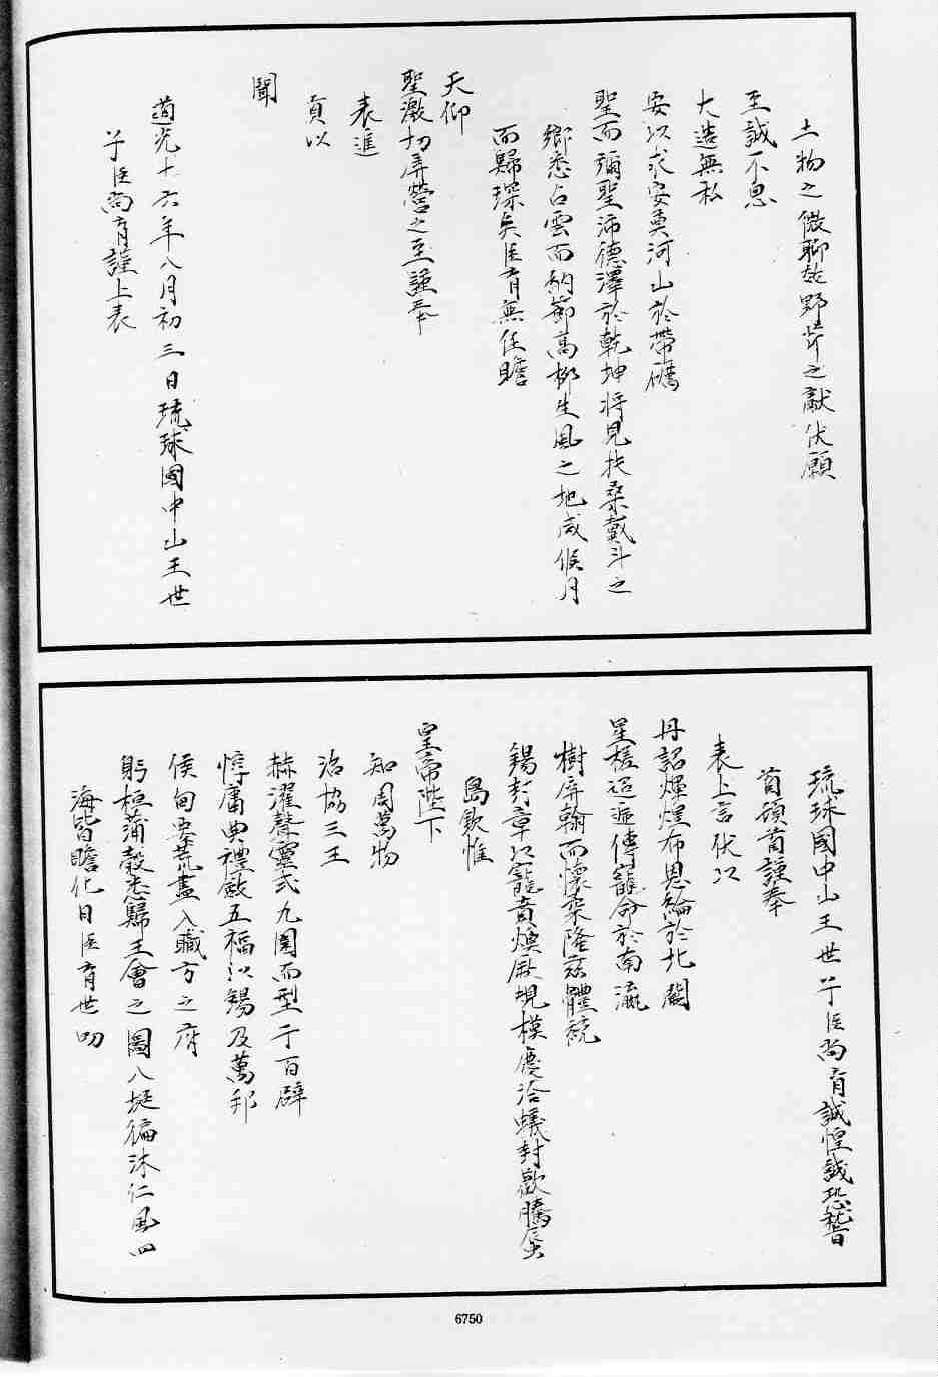 土物之微聊效野芹之獻伏願
至誠不息
大造無私
安以求安奠河山於帶礪
聖而彌聖沛德澤於乾坤將見扶桑戴斗之
鄉悉占雲而納節高柳生風之地咸候月
而歸琛矣臣育無任瞻
天仰
聖激切屏營之至謹奉
表進
貢以
聞
道光十六年八月初三日琉球國中山王世
子臣尚育謹上表
琉球國中山王世子臣尚育誠惶誠恐稽
首頓首謹奉
表上言伏以
丹詔煇煌布恩綸於北闕
星槎迢遞傳寵命於南瀛
樹屏翰而懷柔隆茲體統
錫封章以寵賁煥厥規模慶洽蟻封歡騰蜃
島欽惟
皇帝陛下
知周萬物
治協三王
赫濯聲靈式九圍而型于百辟
惇庸典禮斂五福以錫及萬邦
侯甸要荒盡入職方之府
躬桓蒲穀悉歸王會之圖八埏徧沐仁風四
海皆瞻化日臣育世叨
6750